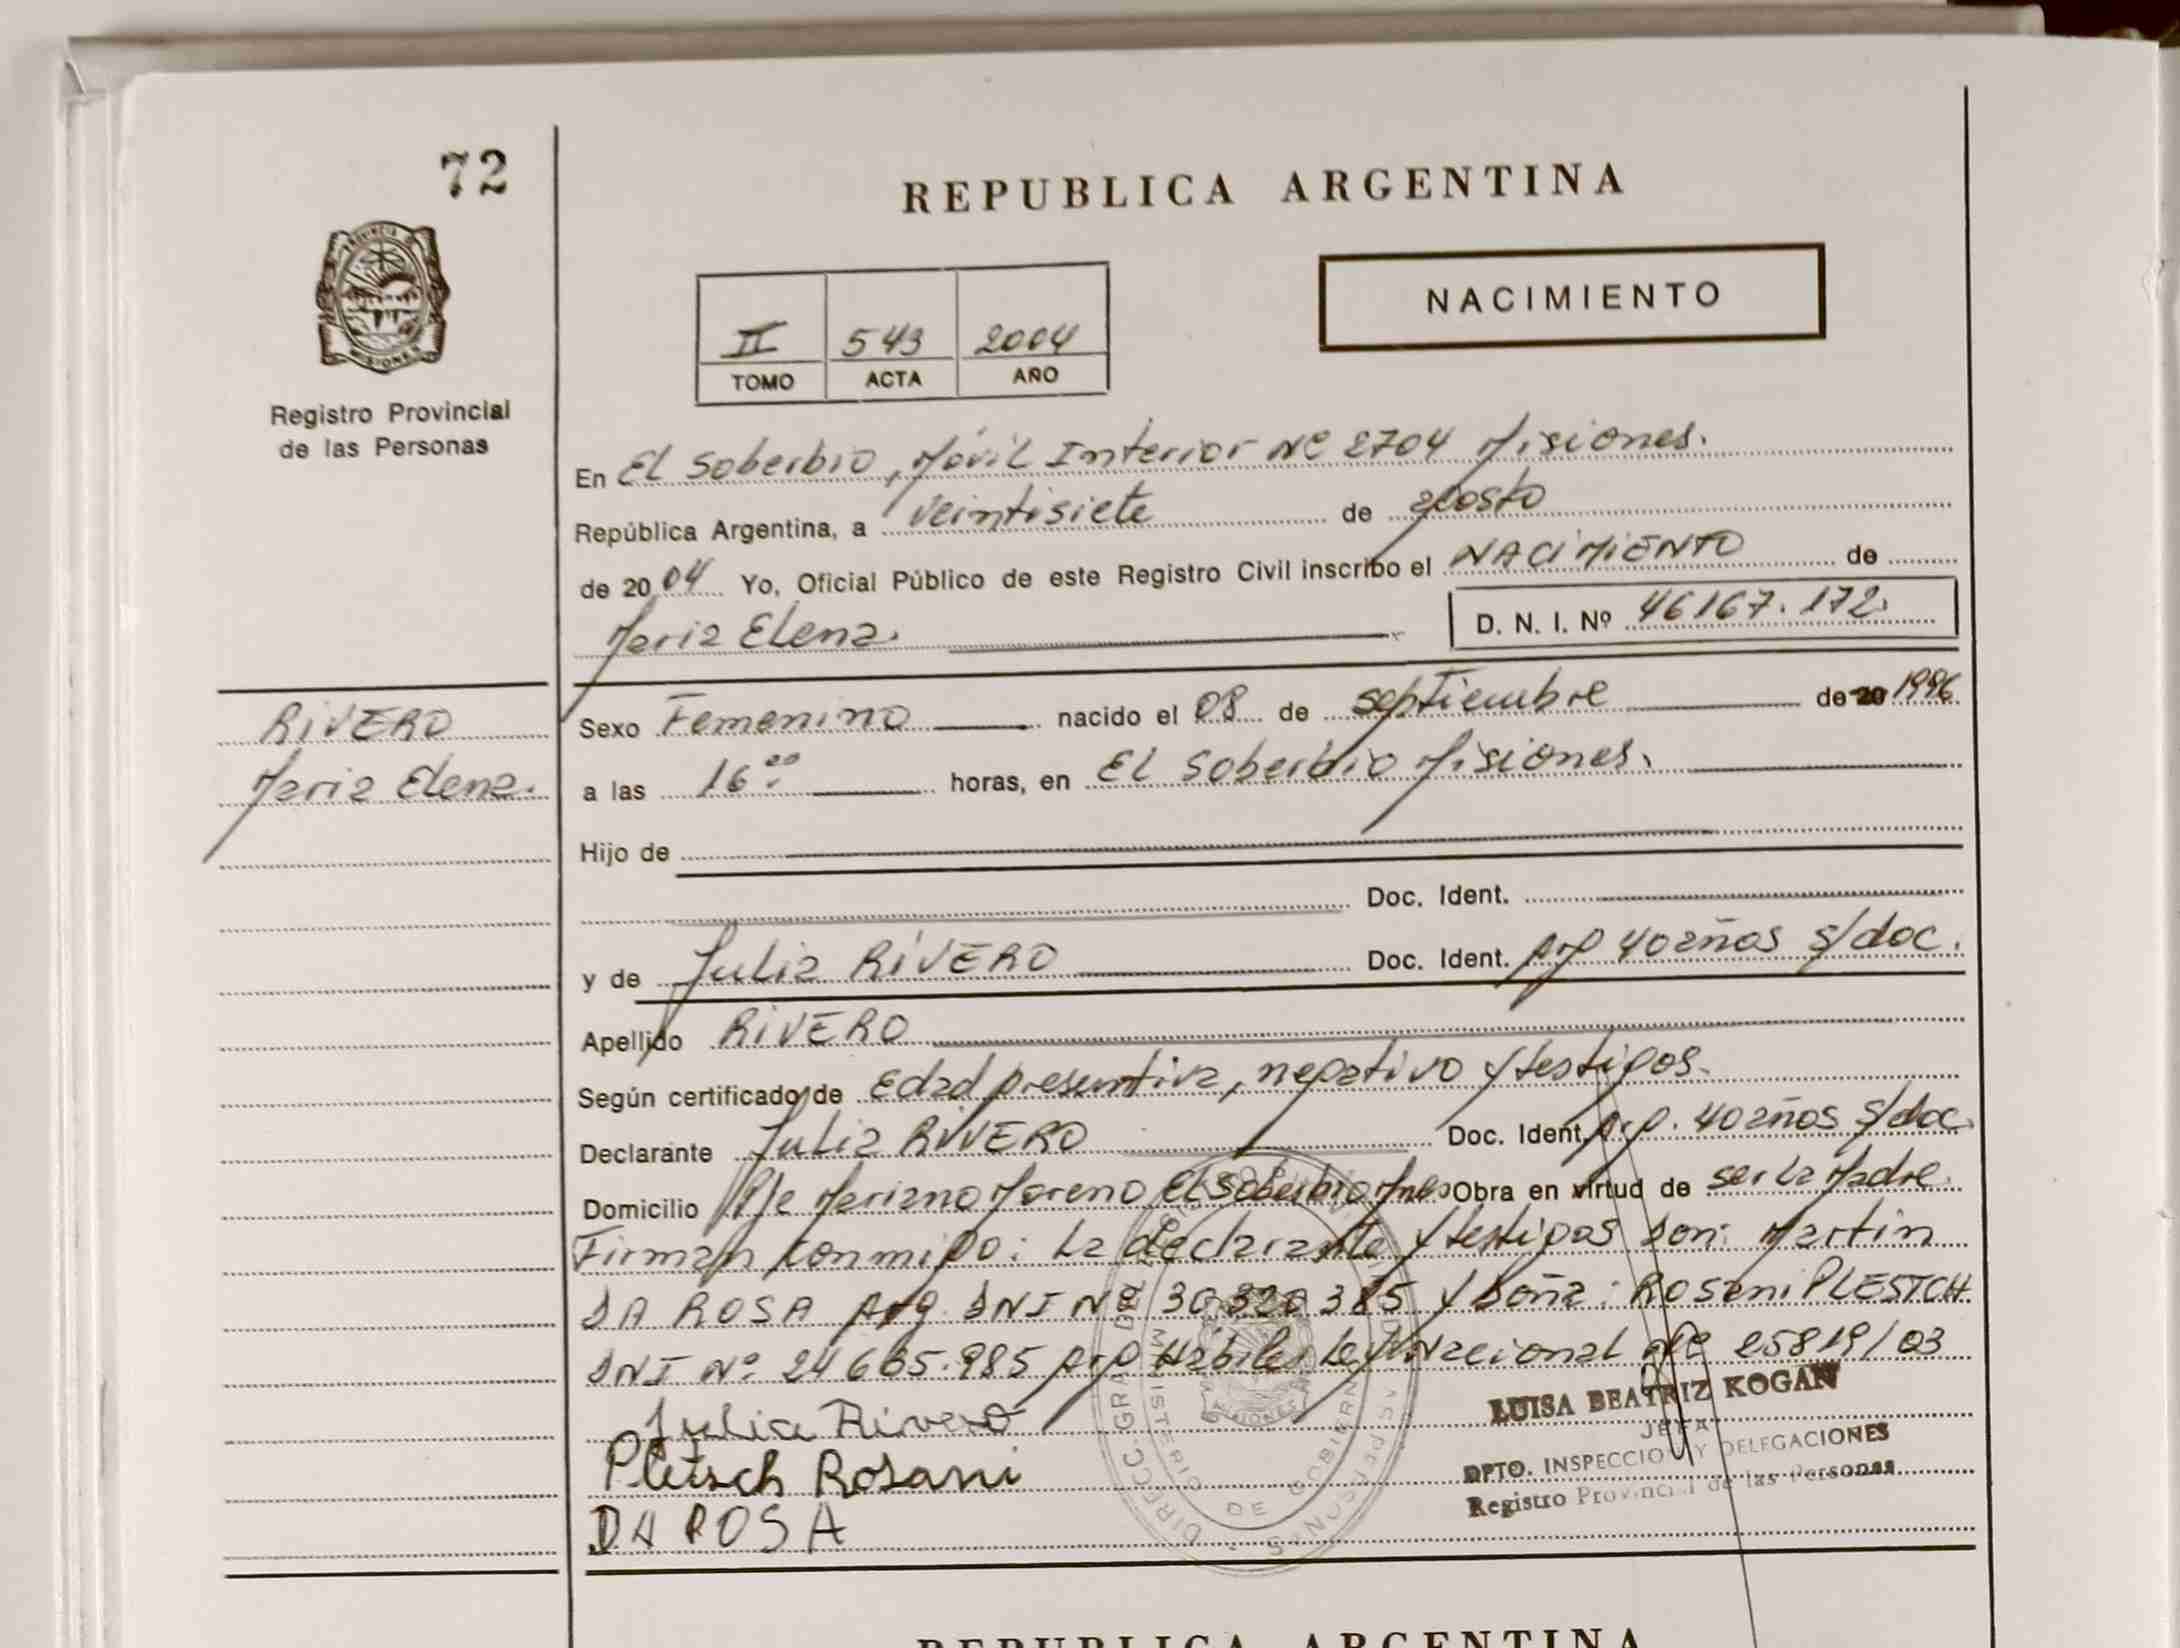 72
REPUBLICA ARGENTINA
PROVINCIA DE
MISIONES
Registro Provincial
de las Personas
NACIMIENTO
II 543 2004
TOMO ACTA AÑO
En El Soberbio, Móvil Interior Nº 2704 Misiones.
República Argentina, a veintisiete de agosto
de 2004 Yo, Oficial Público de este Registro Civil inscribo el NACIMIENTO de
Maria Elena.
D. N. I. Nº 46167.172.
RIVERO
Maria Elena.
Sexo Femenino nacido el 08 de septiembre de 20 1996
a las 16 00 horas, en El Soberbio Misiones.
Hijo de
Doc. Ident.
y de Julia RIVERO Doc. Ident. Arg 40 años s/doc.
Apellido RIVERO
Según certificado de Edad presuntiva, negativo y testigos.
Declarante Julia RIVERO Doc. Ident. Arg. 40 años s/doc.
Domicilio Pje Mariano Moreno El Soberbio Mnes Obra en virtud de ser la Madre
Firman conmigo: La declarante y testigos Don: Martin
DA ROSA Arg. DNI Nº 30.320.385 y Doña: Roseni PLESTCH
DNI Nº 24665.985 Arg Hábiles Ley Nacional 25819/03
Julia Rivero
Pletsch Rosani
DA ROSA
LUISA BEATRIZ KOGAN
JEFA
DPTO. INSPECCION Y DELEGACIONES
Registro Provincial de las Personas
MINISTERIO DE GOBIERNO
MISIONES
REPUBLICA ARGENTINA